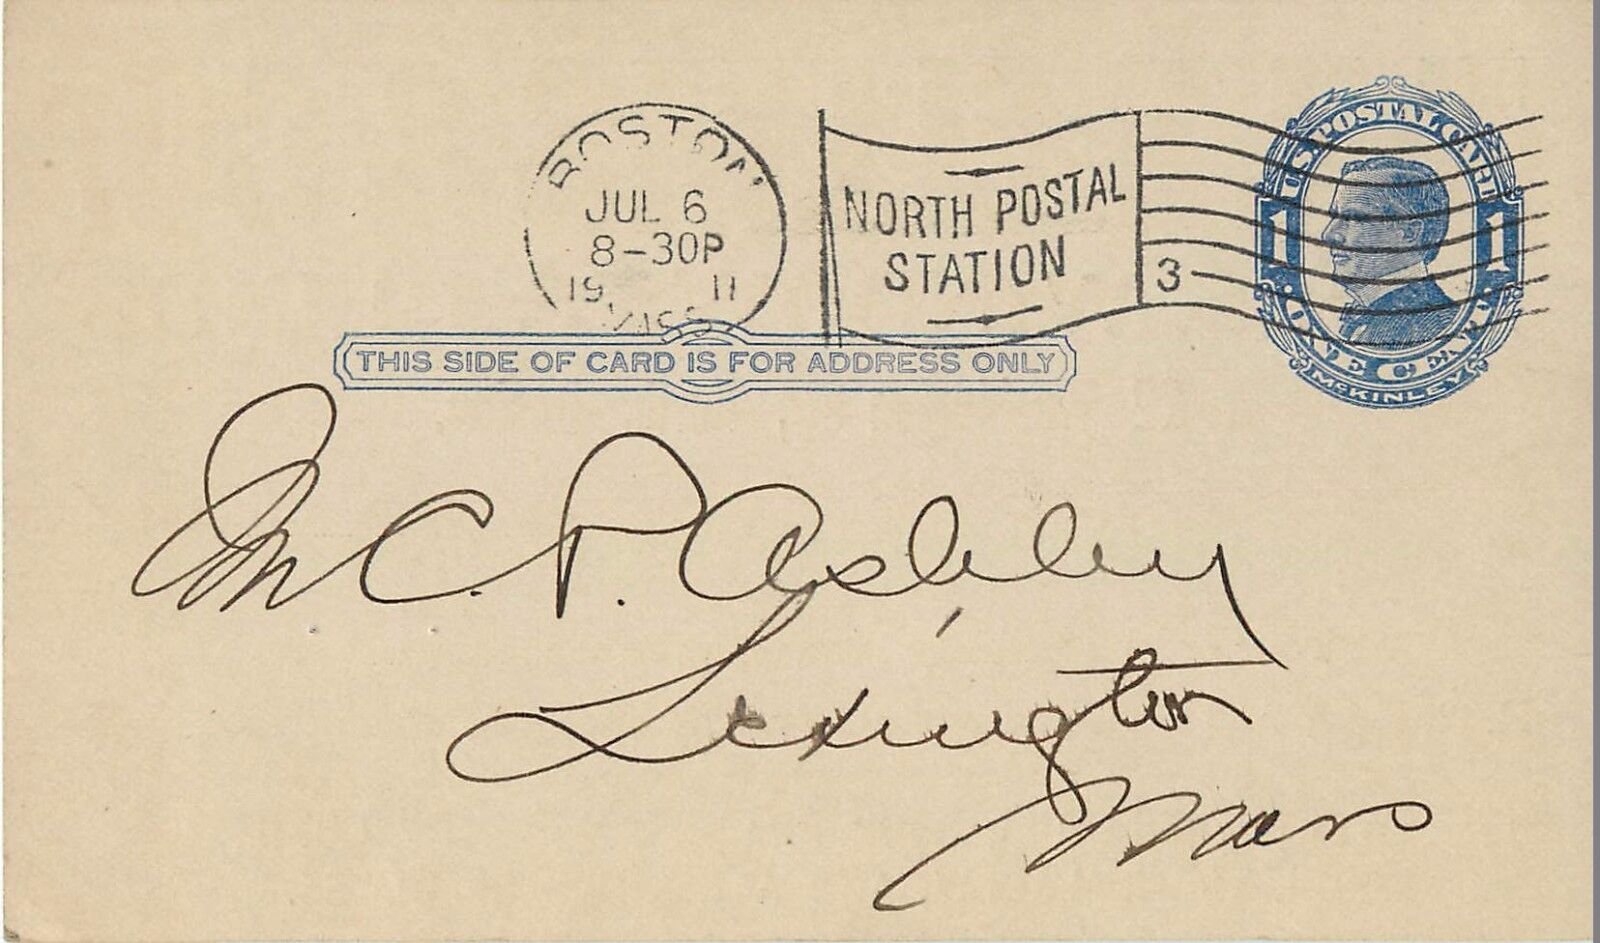 BOSTON
JUL 6
8-30P
19 11
MASS
NORTH POSTAL
STATION
3
U.S. POSTAL CARD
1 1
ONE CENT
McKINLEY
THIS SIDE OF CARD IS FOR ADDRESS ONLY
M C. P. Ashley,
Lexington
Mass